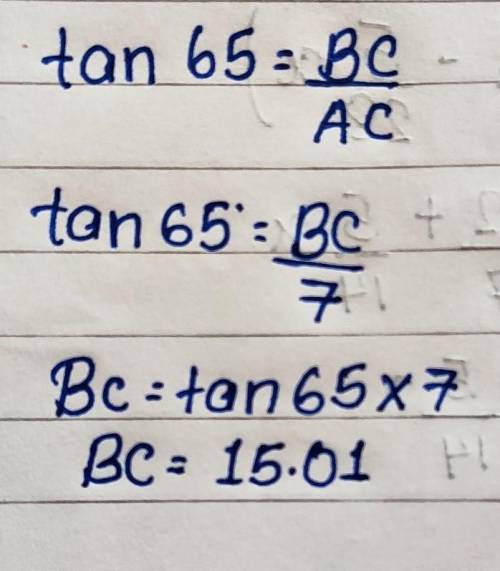 tan 65 = BC/AC
tan 65° = BC/7
BC = tan 65 x 7
BC = 15.01